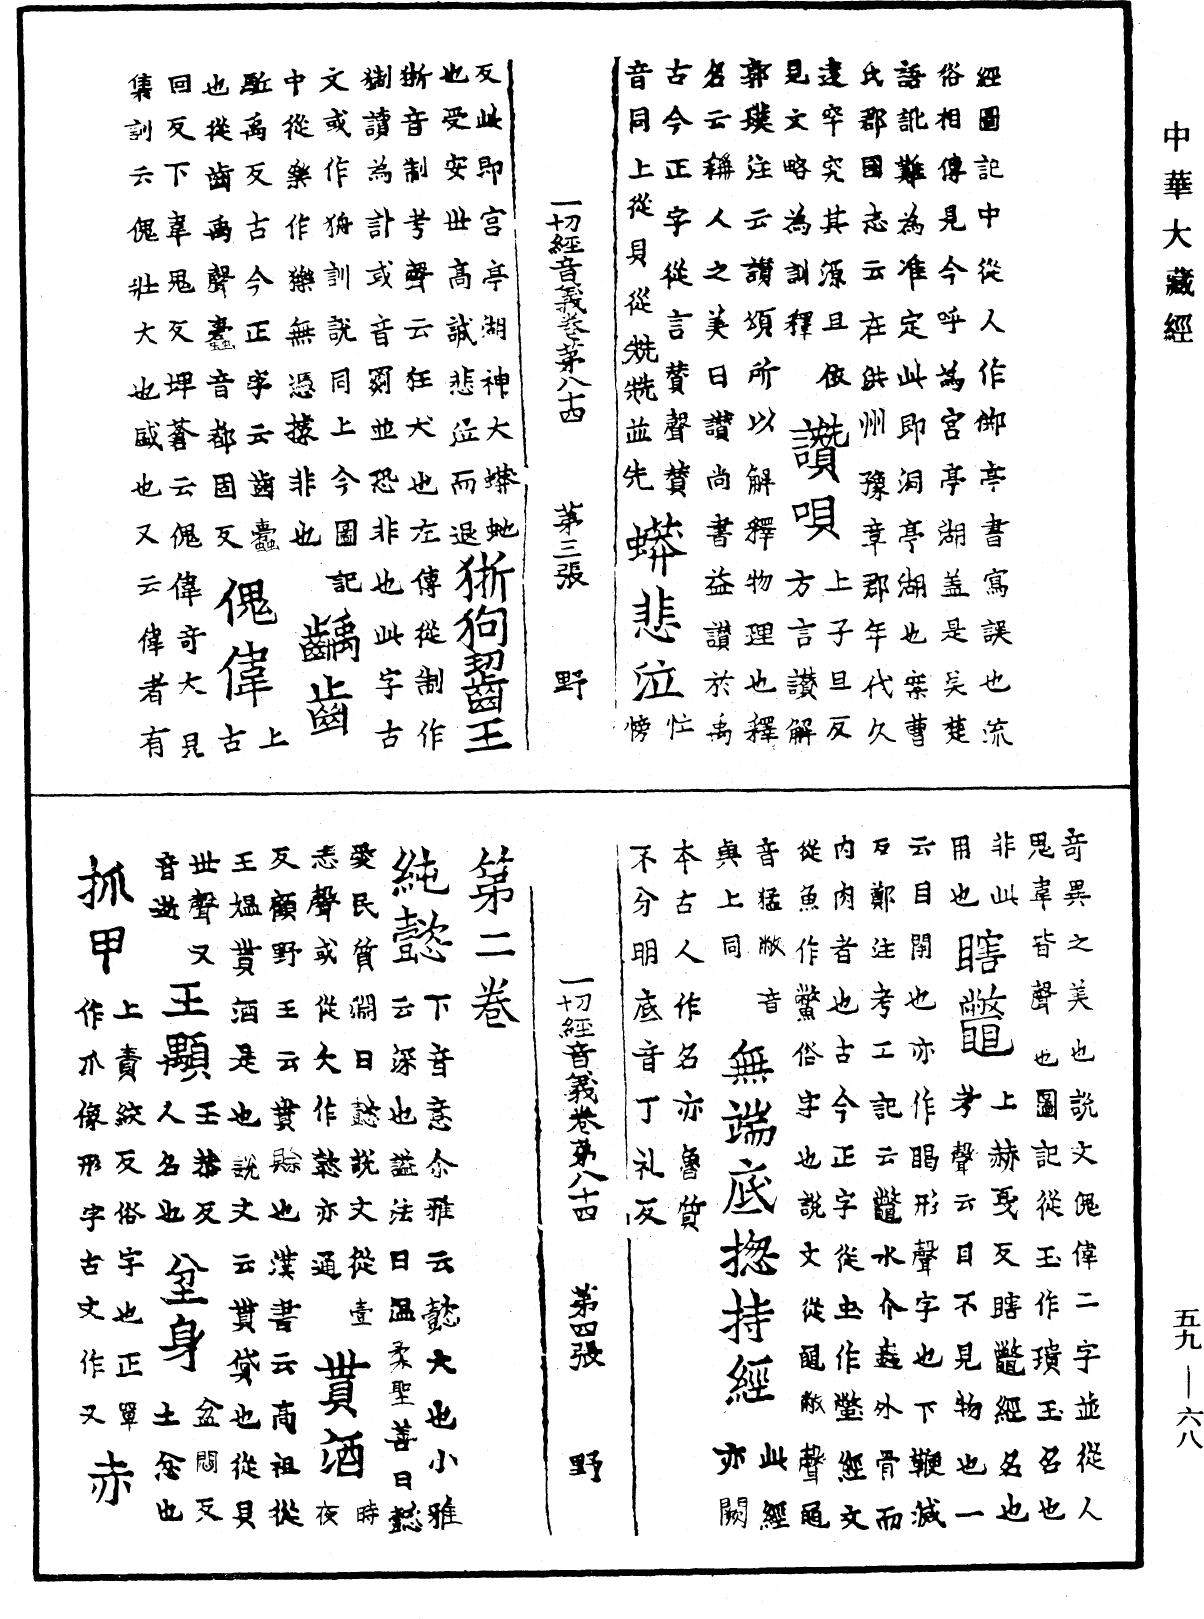 中華大藏經
經圖記中從人作御亭書寫誤也流
俗相傳見今呼為宮亭湖盖是吳楚
語訛難為准定此即洞亭湖也案曹
氏郡國志云在洪州豫章郡年代久
遠罕究其源且依上子旦反
見文略為訓釋 讚唄 方言讚解
郭璞注云讚頌所以解釋物理也釋
名云稱人之美曰讚尚書益讚於禹
古今正字從言贊聲贊 忙
音同上從貝從兟兟並先 蟒悲泣 愽
一切經音義卷第八十四 第三張 野
反此即宫亭湖神大蟒虵
也受安世高誡悲泣而退 猘狗齧王
猘音制考聲云狂犬也左傳從制作
猘讀為計或音罽並恐非也此字古
文或作狾訓說同上今圖記
中從樂作㹊無憑據非也 齲齒
駈禹反古今正字云齒蠹
也從齒禹聲蠹音都固反 傀偉 上古
回反下韋鬼反埤蒼云傀偉奇大皃
集訓云傀壯大也盛也又云偉者有
奇異之美也說文傀偉二字並從人
鬼韋皆聲也圖記從玉作瓌玉名也
非此 瞎鼈 上赫戛反瞎鼈經名也
用也 考聲云目不見物也一
云目閉也亦作䁈形聲字也下鞭滅
反鄭注考工記云鼈水介蟲外骨而
内肉者也古今正字從虫作蟞經文
從魚作鱉俗字也說文從黽敝聲黽
音猛敝音 無端底揔持經 此經
與上同 亦闕
本古人作名亦魯質
不分明底音丁礼反
一切經音義卷第八十四 第四張 野
第二卷
純懿 下音意尒雅云懿大也小雅
云深也謚法曰温柔聖善曰懿
愛民質淵曰懿說文從壹 時
恣聲或從欠作懿亦通 貰酒 夜
反顧野王云貰賒也漢書云高祖從
王媪貰酒是也說文云貰貸也從貝
世聲又 王顆 王恭反 坌身 盆悶反
音逝 人名也 土坌也
抓甲 上責絞反俗字也正單
作爪像形字古文作叉 赤
五九—六八